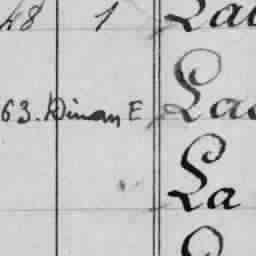 48 1 Lau
63. Dinan E Las
La